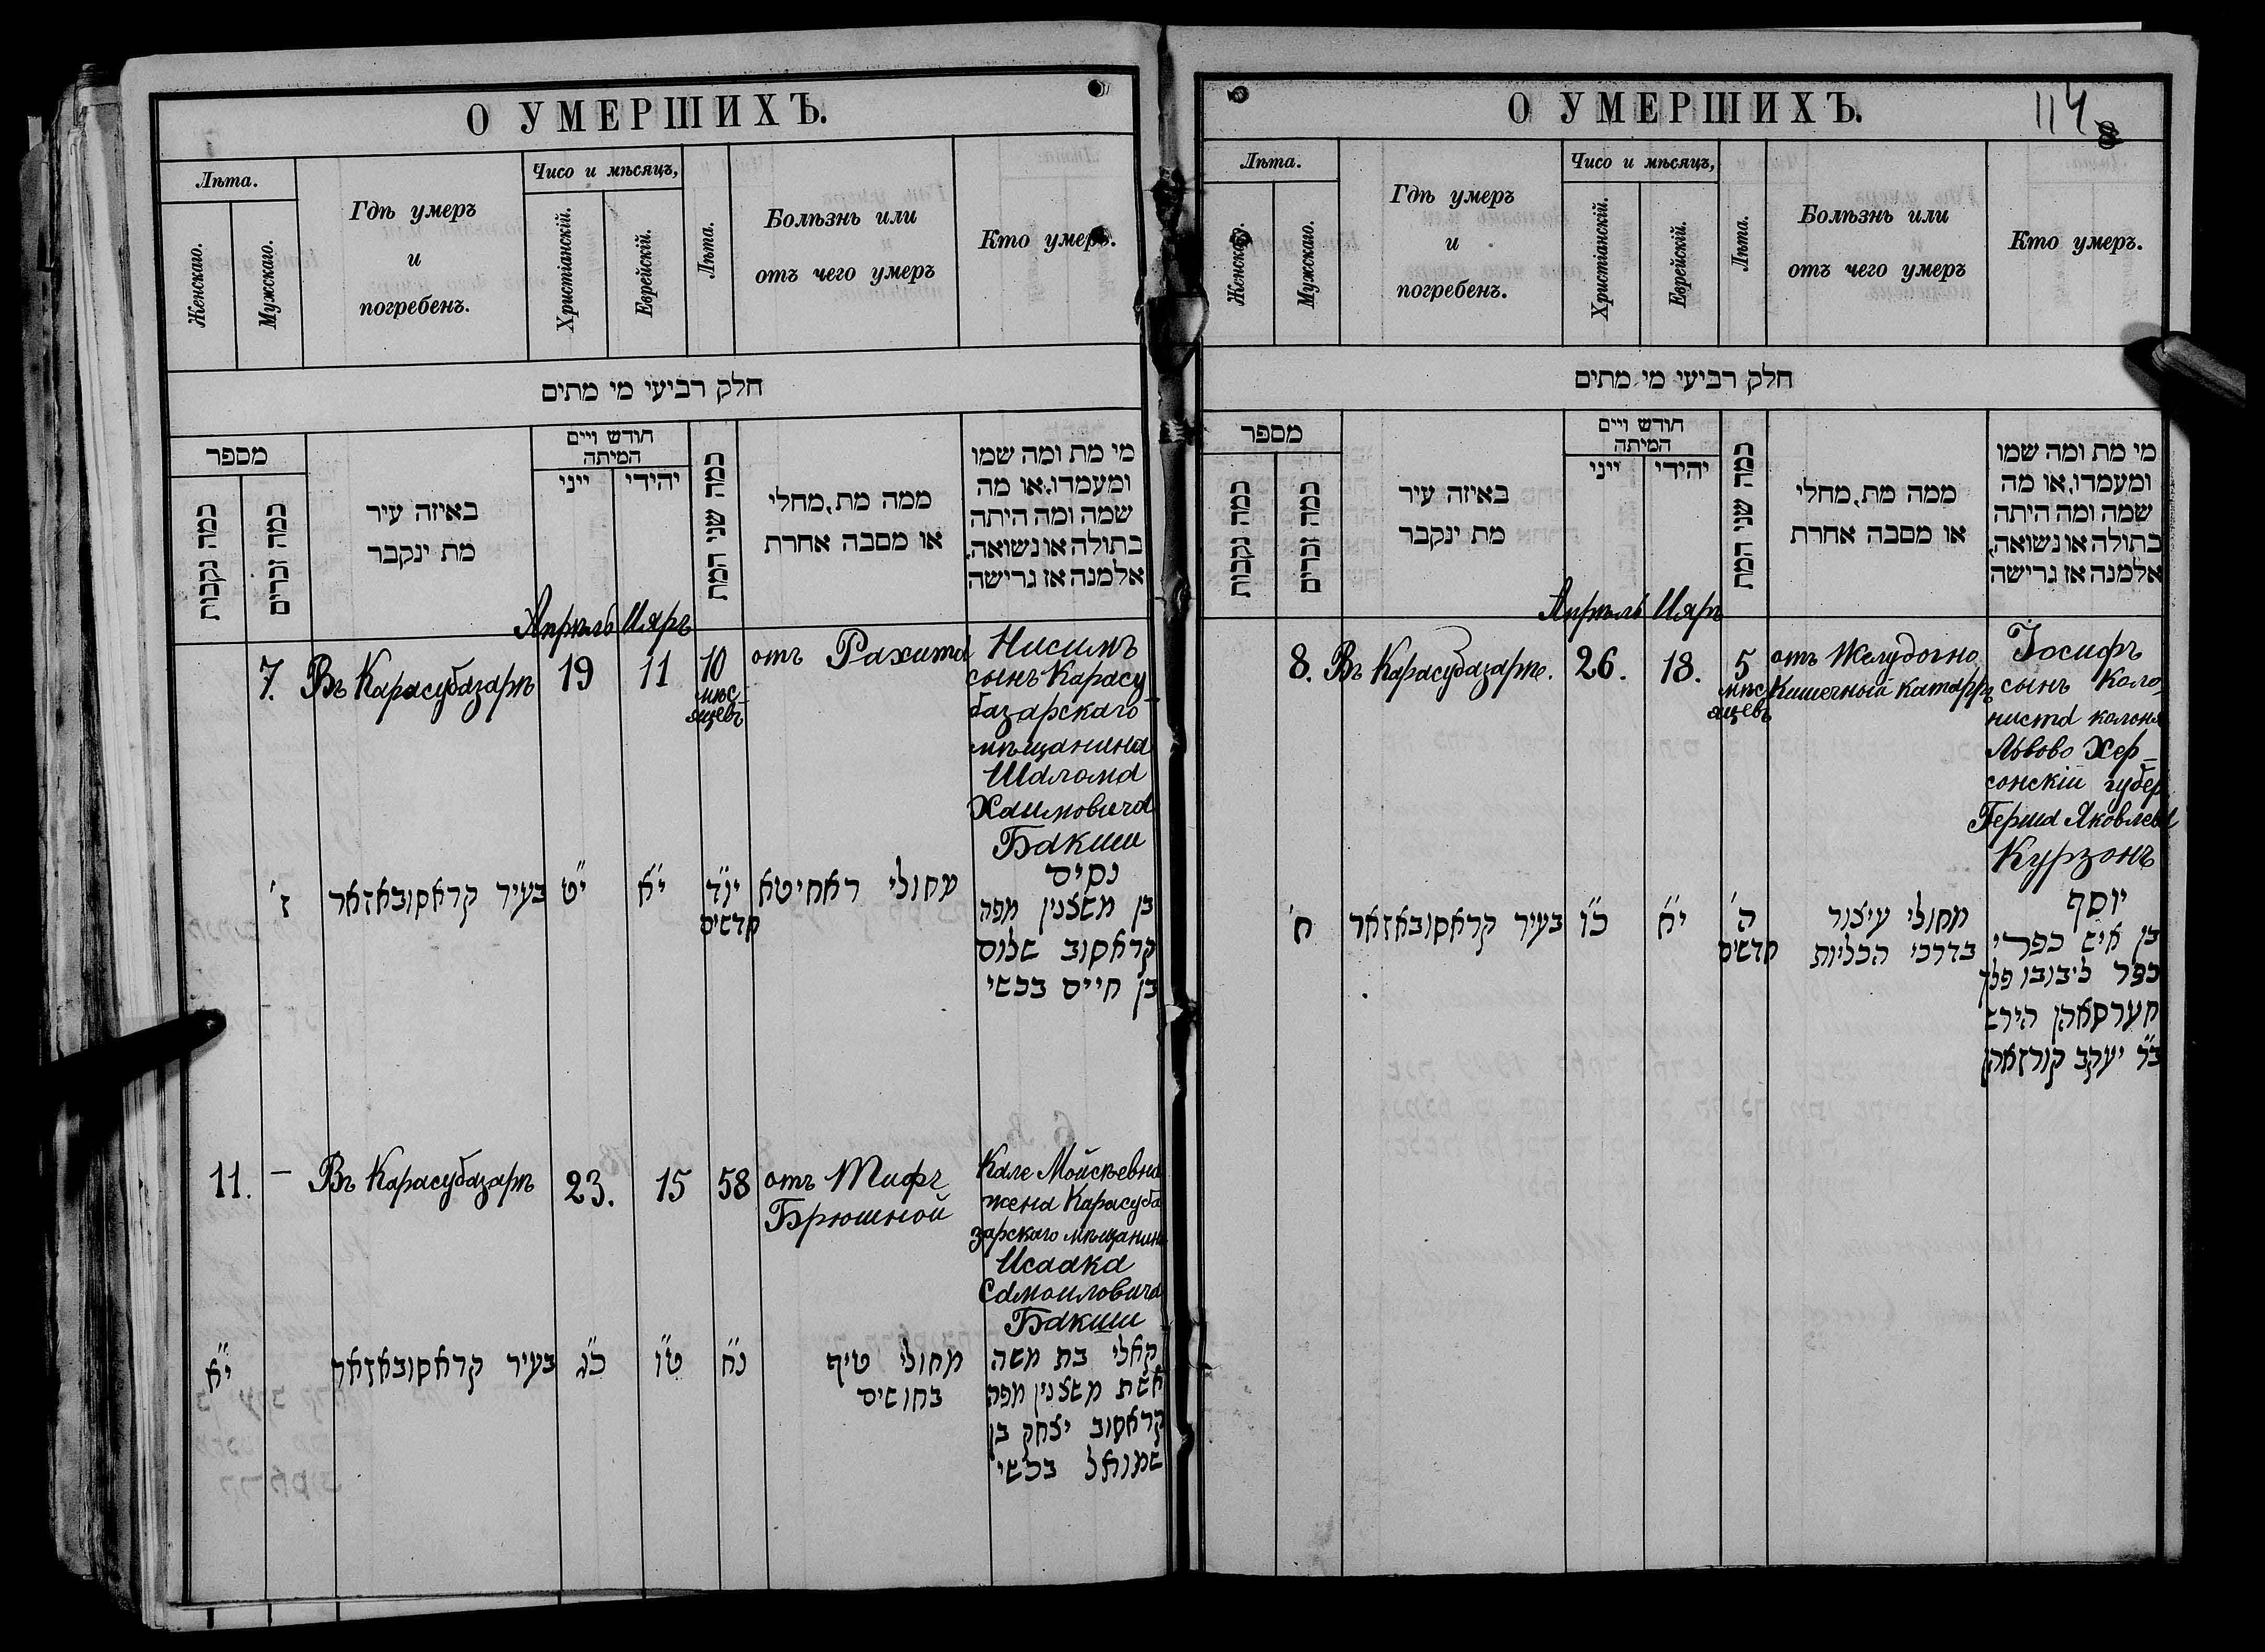 О УМЕРШИХЪ.
Лѣта.
Женскаго.
Мужскаго.
Гдѣ умеръ
и
погребенъ.
Чисо и мѣсяцъ,
Христіанскій.
Еврейскій.
Лѣта.
Болѣзнь или
отъ чего умеръ
Кто умеръ.
חלק רביעי מי מתים
מספר
כמה נקבות
כמה זכרים
באיזה עיר
מת ינקבר
חודש ויים
המיתה
ייני
יהידי
כמה שני המת
ממה מת, מחלי
או מסבה אחרת
מי מת ומה שמו
ומעמדו, או מה
שמה ומה היתה
בתולה או נשואה,
אלמנה אז גרישה
Апрѣль Іяръ
7. Въ Карасубазарѣ 19 11 10
мѣс-
яцевъ
отъ Рахита
Нисимъ
сынъ Карасу
базарскаго
мѣщанина
Шалома
Хаимовича
Бакши
ז' בעיר קראסובאזאר י"ט י"א יו"ד
חדשים
מחולי ראחיטא
נסים
בן משצנין מפה
קראסוב שלום
בן חיים בכשי
11. — Въ Карасубазарѣ 23. 15 58 отъ Тифъ
Брюшной
Кале Мойсѣевна
жена Карасуба
зарскаго мѣщанина
Исаака
Самоиловича
Бакши
י"א בעיר קראסובאזאר כ"ג ט"ו נ"ח מחולי טיף
בחושים
קאלי בת משה
אשת משצנין מפה
קראסוב יצחק בן
שמואל בכשי
О УМЕРШИХЪ.
114
Лѣта.
Женскаго.
Мужскаго.
Гдѣ умеръ
и
погребенъ.
Чисо и мѣсяцъ,
Христіанскій.
Еврейскій.
Лѣта.
Болѣзнь или
отъ чего умеръ
Кто умеръ.
חלק רביעי מי מתים
מספר
כמה נקבות
כמה זכרים
באיזה עיר
מת ינקבר
חודש ויים
המיתה
ייני
יהידי
כמה שני המת
ממה מת, מחלי
או מסבה אחרת
מי מת ומה שמו
ומעמדו, או מה
שמה ומה היתה
בתולה או נשואה,
אלמנה אז גרישה
Апрѣль Іяръ
8. Въ Карасубазарѣ. 26. 18. 5
мѣс
яцевъ
отъ Желудочно
Кишечный катарръ
Іосифъ
сынъ Коло-
ниста колоніи
Львово Хер-
сонскій губер
Герша Яковлева
Курзонъ
ח' בעיר קראסובאזאר כ"ו י"א ה'
חדשים
מחולי עיצור
בדרכי הכליות
יוסף
בן איש כפרי
כפר ליבובו פלך
חערסאהן הירש
ב"ר יעקב קורזאהן